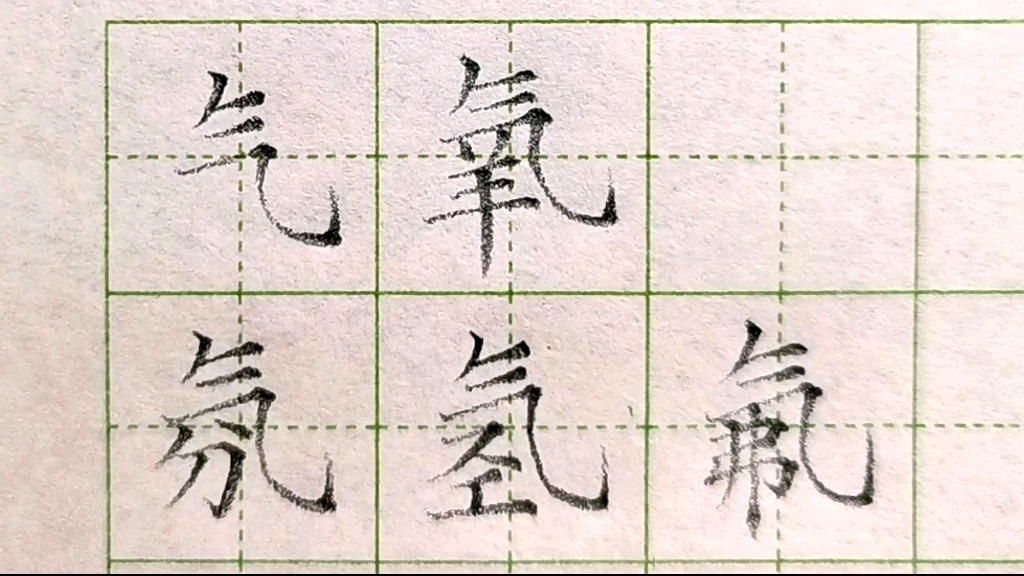 气氧
氛氢氟